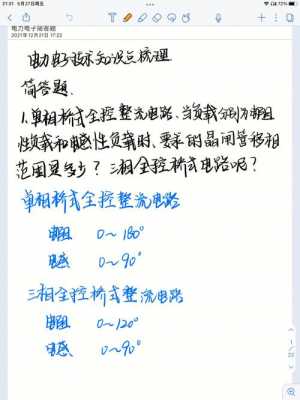 21:31 5月27日周五
72%
电力电子简答题
2021年12月21日 17:22
电力电子技术知识点梳理
简答题.
1.单相桥式全控整流电路、当负载分别为电阻
性负载和电感性负载时、要求的晶闸管移相
范围是多少？三相全控桥式电路呢？
单相桥式全控整流电路
电阻 0～180°
电感 0～90°
三相全控桥式整流电路
电阻 0～120°
电感 0～90°
1